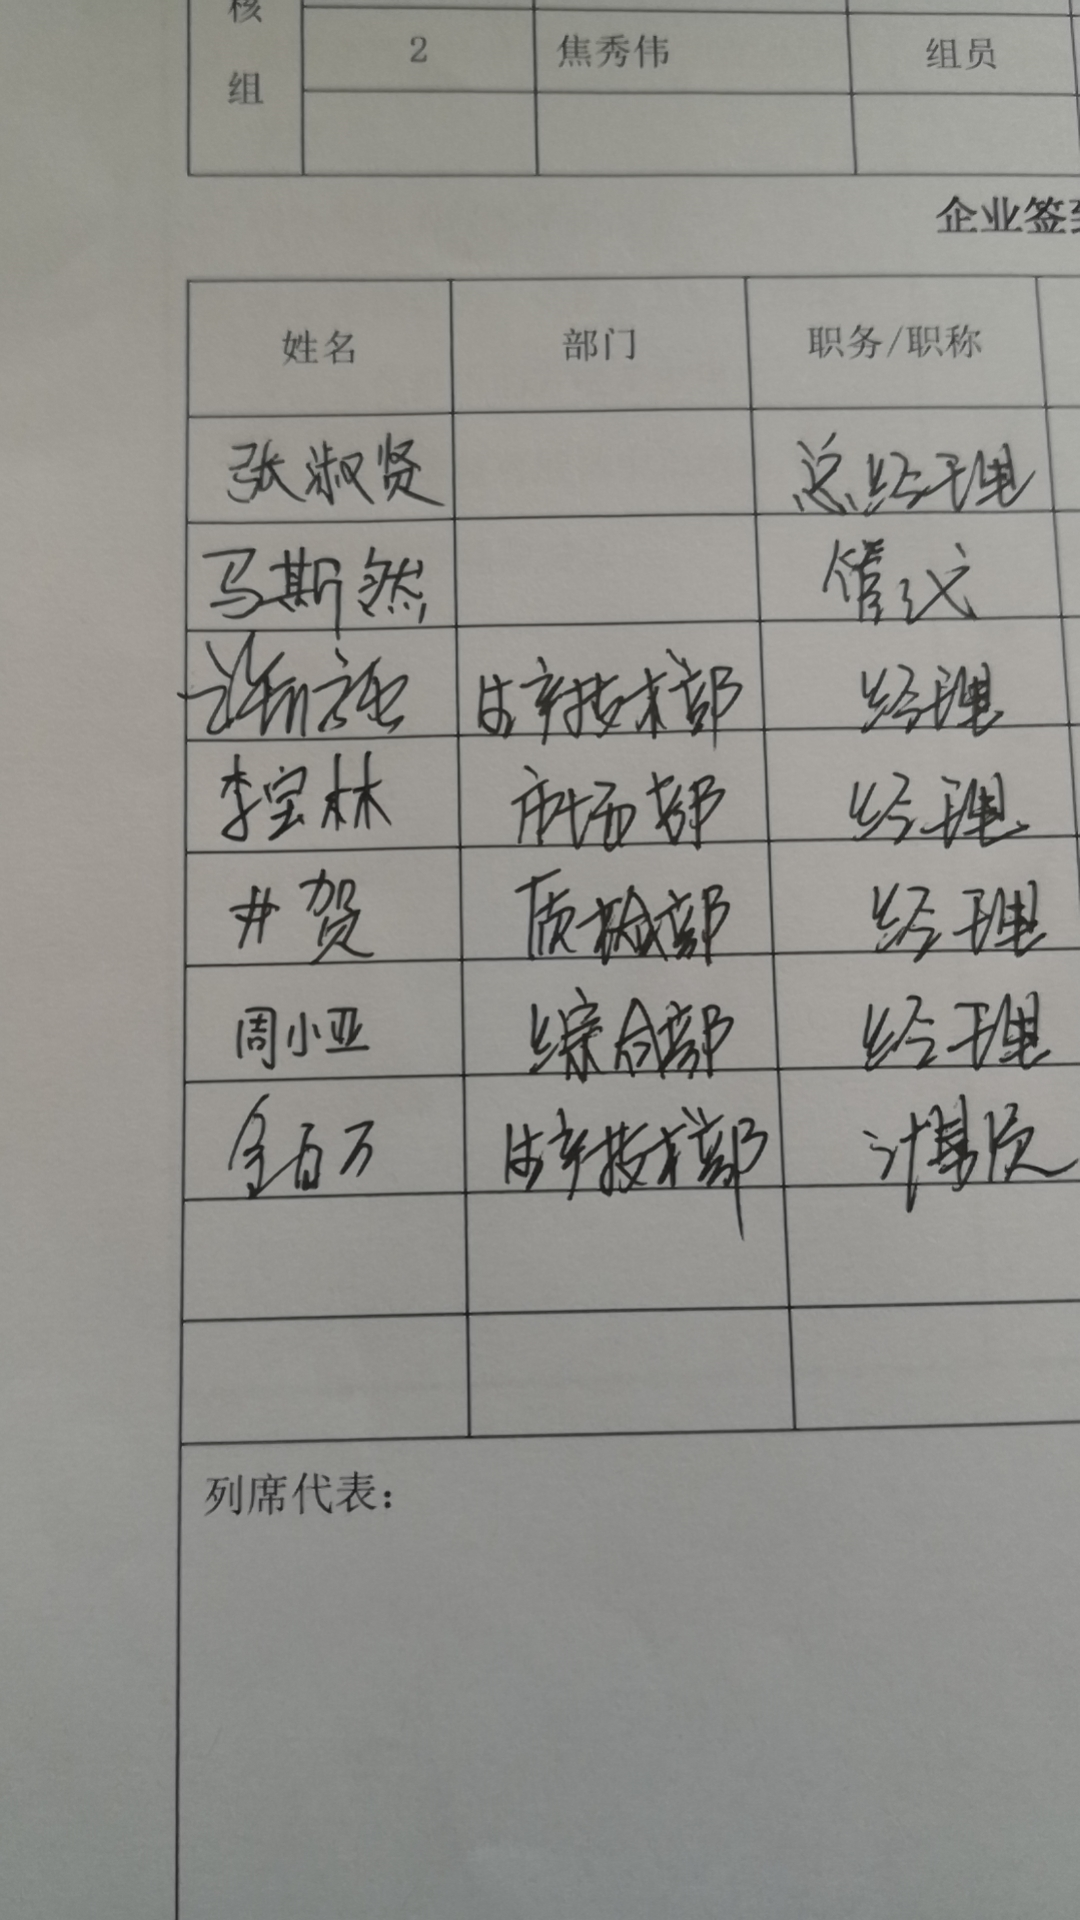 核
组
2 焦秀伟 组员
企业签到
姓名 部门 职务/职称
张淑贤 总经理
马斯然 管代
生产技术部 经理
李宝林 市场部 经理
井贺 质检部 经理
周小亚 综合部 经理
金百万 生产技术部 计量员
列席代表：